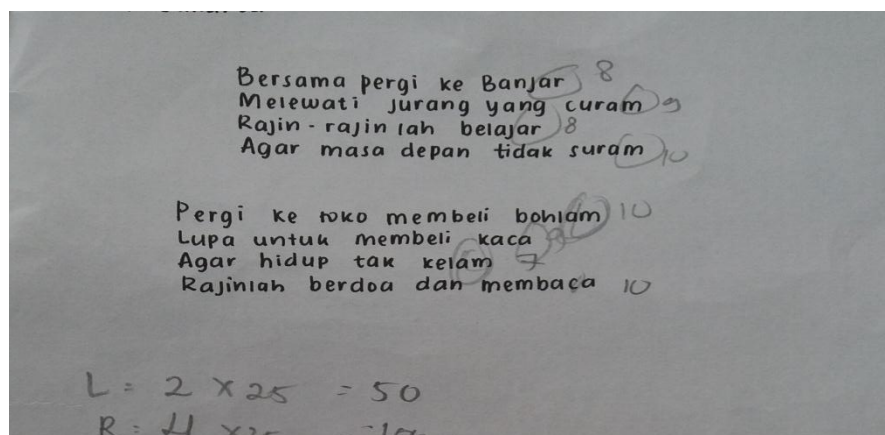 Bersama pergi ke Banjar 8
Melewati jurang yang curam 9
Rajin-rajin lah belajar 8
Agar masa depan tidak suram 10
Pergi ke toko membeli bohlam 10
Lupa untuk membeli kaca
Agar hidup tak kelam 7
Rajinlah berdoa dan membaca 10
L = 2 x 25 = 50